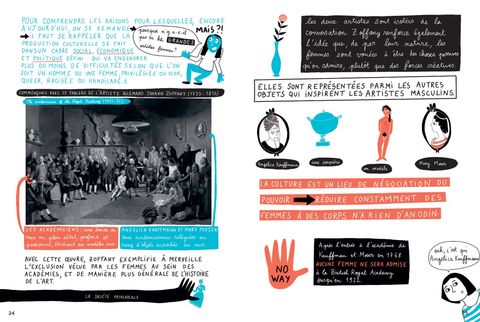 POUR COMPRENDRE LES RAISONS POUR LESQUELLES, ENCORE
AUJOURD'HUI, ON SE DEMANDE
IL FAUT SE RAPPELER QUE LA
PRODUCTION CULTURELLE SE FAIT
DANS UN CADRE SOCIAL, ÉCONOMIQUE
ET POLITIQUE DÉFINI QUI VA ENGENDRER
PLUS OU MOINS DE DIFFICULTÉS SELON QUE L'ON
SOIT UN HOMME OU UNE FEMME, PRIVILÉGIÉE OU NON,
QUEER, RACISÉE OU HANDICAPÉE
MAIS?!
pourquoi n'y a-t-il
pas eu de GRANDES
artistes femmes?
COMMENÇONS AVEC CE TABLEAU DE L'ARTISTE ALLEMAND JOHANN ZOFFANY (1733-1810)
The academicians of the Royal Academy (1771-72)
LES ACADÉMICIENS
ANGELICA KAUFFMANN ET MARY MOSER
AVEC CETTE ŒUVRE, ZOFFANY EXEMPLIFIE À MERVEILLE
L'EXCLUSION VÉCUE PAR LES FEMMES AU SEIN DES
ACADÉMIES, ET DE MANIÈRE PLUS GÉNÉRALE DE L'HISTOIRE
DE L'ART.
LA SOCIÉTÉ PATRIARCALE
24
les deux artistes sont isolées de la
conversation. Zoffany renforce également
l'idée que, de par leur nature, les
femmes sont vouées à être des choses passives
qu'on admire, plutôt que des forces créatives.
ELLES SONT REPRÉSENTÉES PARMI LES AUTRES
OBJETS QUI INSPIRENT LES ARTISTES MASCULINS.
Angelica Kauffmann
une soupière
un modèle
Mary Moser
LA CULTURE EST UN LIEU DE NÉGOCIATION DU
POUVOIR RÉDUIRE CONSTAMMENT DES
FEMMES À DES CORPS N'A RIEN D'ANODIN
NO
WAY
Après l'entrée à l'académie de
Kauffmann et Moser en 1768
AUCUNE FEMME NE SERA ADMISE
à la British Royal Academy
jusqu'en 1922.
ouh, c'est qui
Angelica Kauffmann